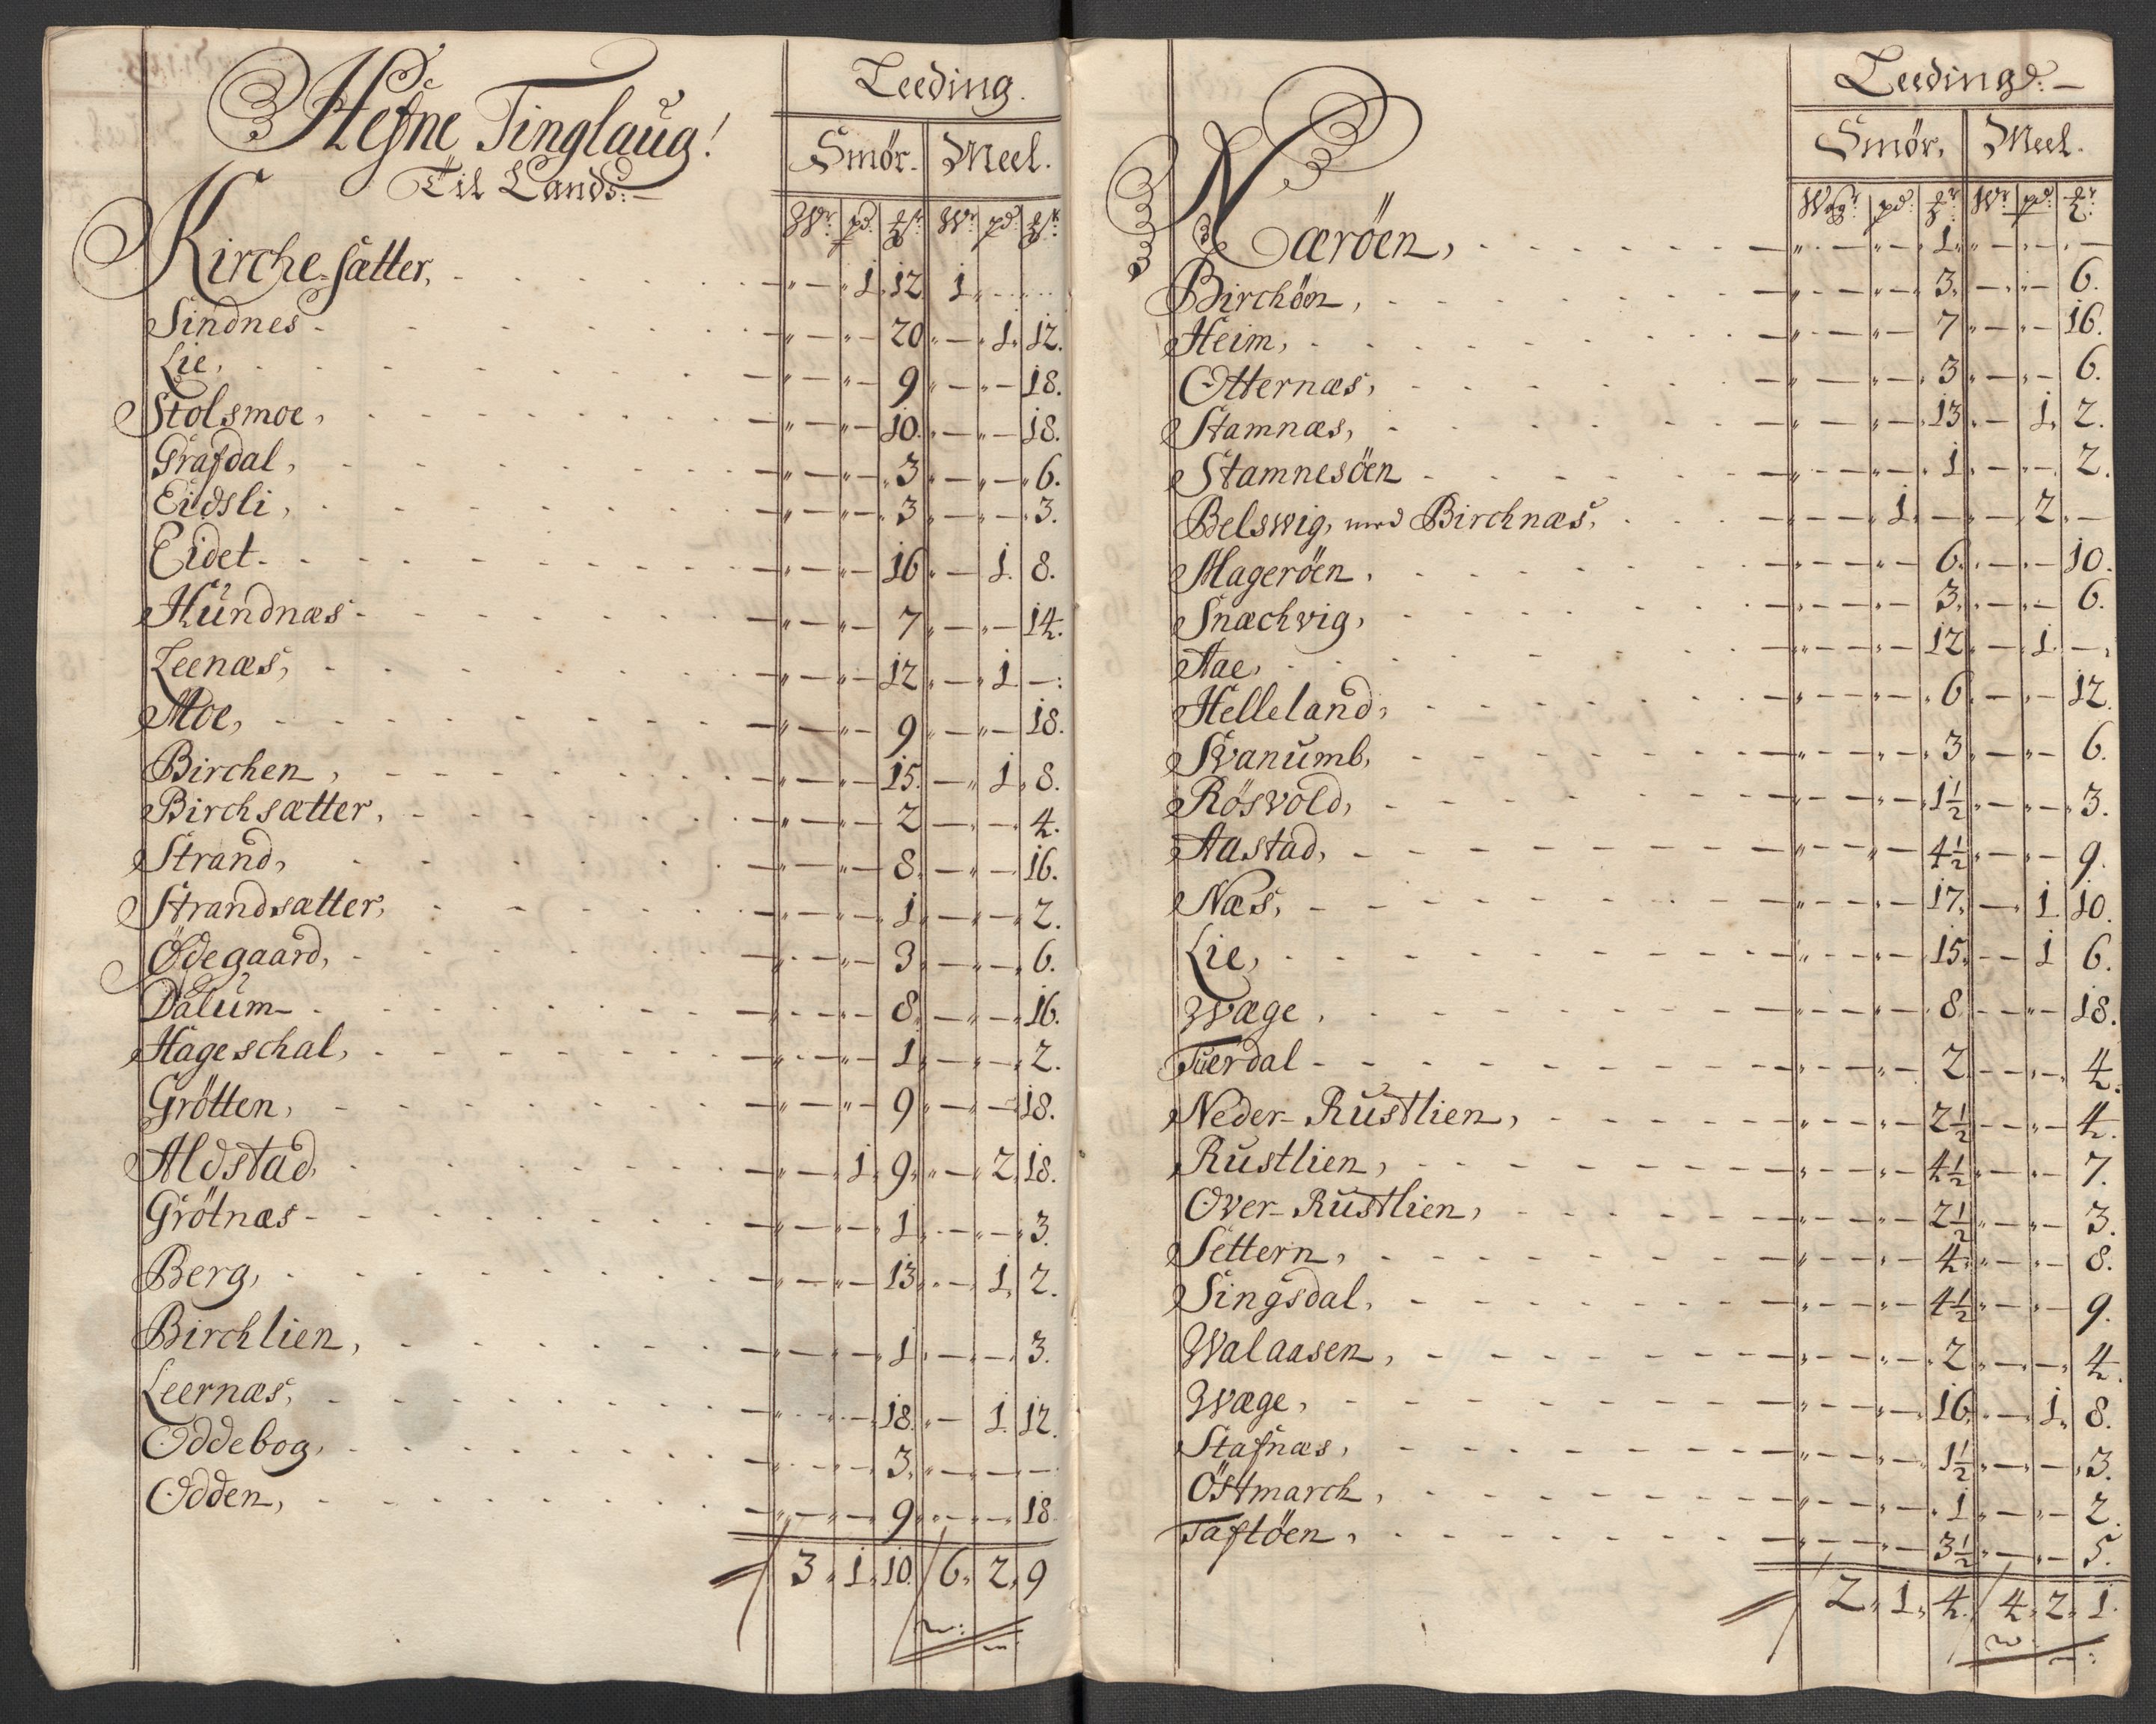 Hefne Tinglaug!
Til Lands:
Leeding.
Smør. Meel.
Wr: pd: Wr: pd:
Kirche-sætter, 1. 12 1.
Sindnes 20 1. 12.
Lie, 9 18.
Stolsmoe, 10. 18.
Grafdal, 3 6.
Eidsli, 3 3.
Eidet 16 1. 8.
Hundnæs 7 14.
Leenæs, 12 1
Moe, 9 18.
Birchen, 15. 1. 8.
Birchsætter, 2 4.
Strand, 8. 16.
Strandsætter, 1. 2.
Ödegaard, 3 6.
Dalum 8. 16.
Hageschal, 1. 2.
Grötten, 9 18.
Aldstad, 1. 9. 2. 18.
Grötnæs 1 3.
Berg, 13 1. 2.
Birchlien, 1 3.
Leernæs, 18. 1. 12.
Oddebog, 3.
Odden, 9. 18
3. 1. 10. 6. 2. 9
Leeding:
Smør, Meel.
Wogr: pd: Wr: pd:
Næröen, 1.
Birchöen, 3. 6.
Heim, 7 16.
Otternæs, 3 6.
Stamnæs, 13 1. 2.
Stamnesöen 1 2.
Belswig, med Birchnæs, 1. 2.
Mageröen, 6. 10.
Snæchvig, 3. 6.
Aae, 12 1.
Helleland, 6 12.
Svanumb, 3 6.
Rösvold, 1½ 3.
Aastad, 4½ 9.
Næs, 17. 1. 10.
Lie, 15. 1 6.
Wæge, 8 18.
Tuerdal 2 4.
Neder-Rustlien, 2½ 4.
Rustlien, 4½ 7.
Over-Rustlien, 2½ 3.
Settern, 4. 8.
Singsdal, 4½ 9.
Walaasen, 2 4.
Wæge, 16. 1. 8.
Stafnæs, 1½ 3.
Östmarch, 1 2.
Taftöen, 3½ 5.
2. 1. 4. 4. 2. 1.